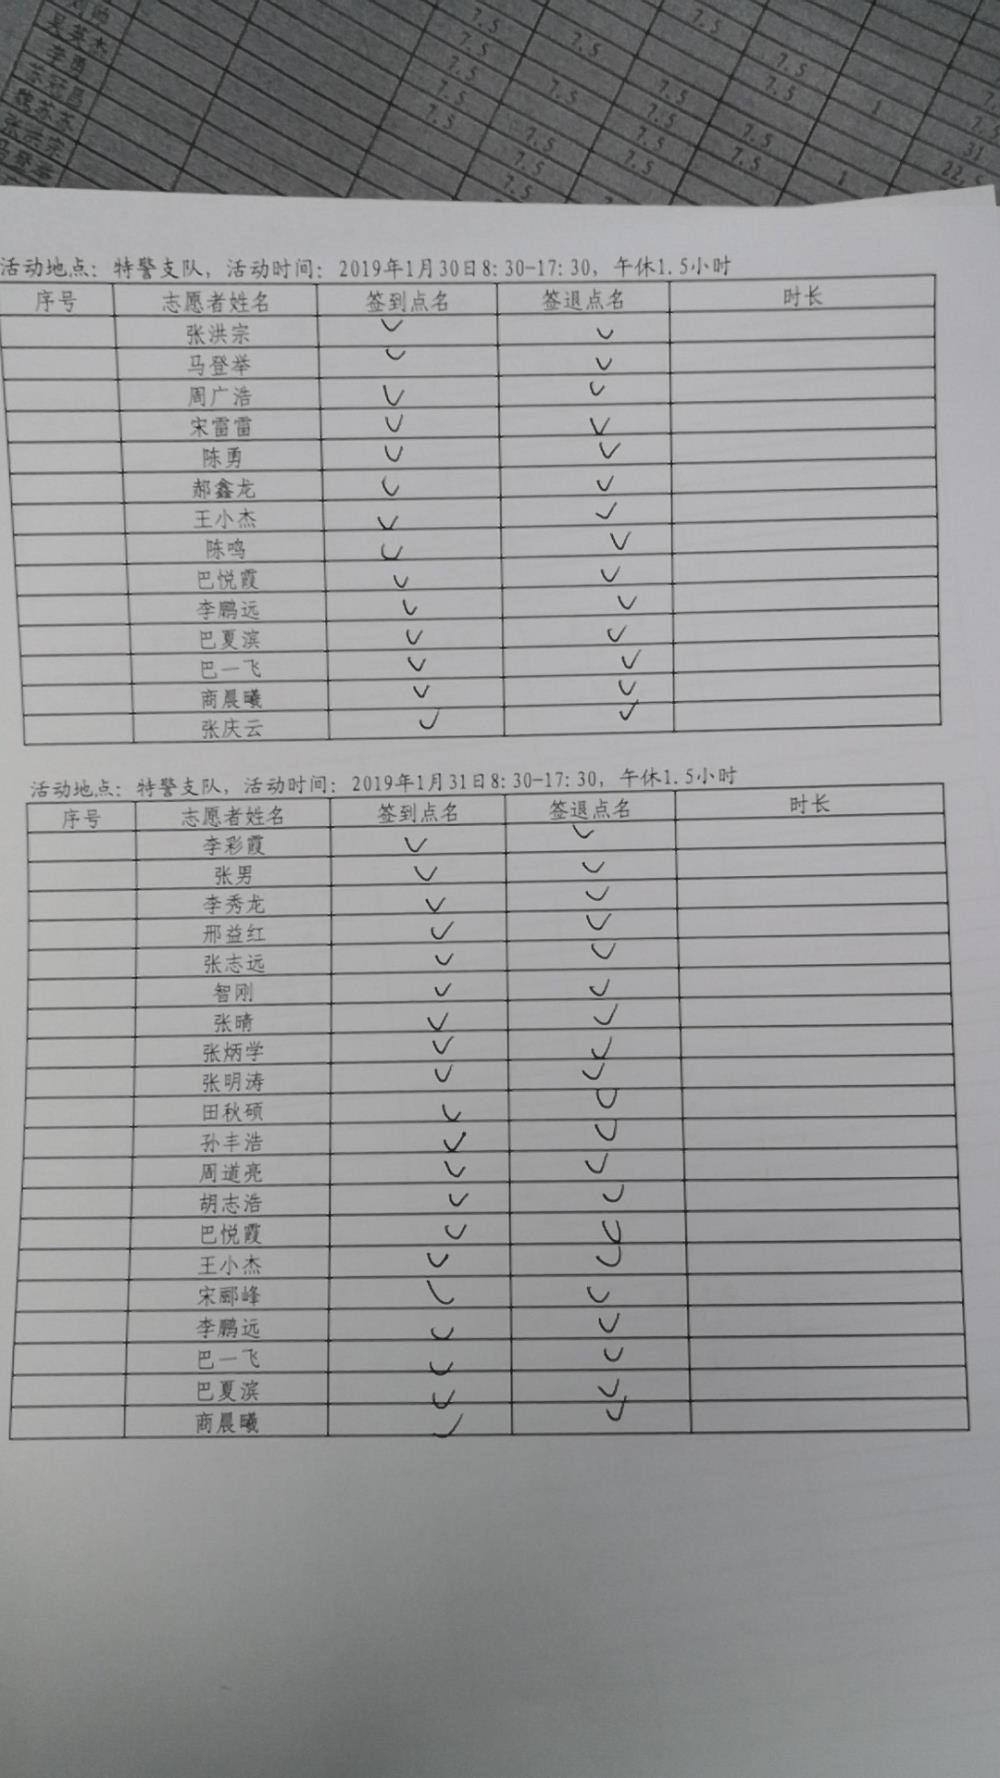 7.5 7.5
7.5 7.5 7.5
7.5 7.5 7.5 7.5 1
7.5 7.5 7.5 7.5 31
7.5 7.5 7.5 7.5 1 22.5
李勇
张宗宗
活动地点：特警支队，活动时间：2019年1月30日8:30-17:30，午休1.5小时
序号 志愿者姓名 签到点名 签退点名 时长
张洪宗 ✓ ✓
马登举 ✓ ✓
周广浩 ✓ ✓
宋雷雷 ✓ ✓
陈勇 ✓ ✓
郝鑫龙 ✓ ✓
王小杰 ✓ ✓
陈鸣 ✓ ✓
巴悦霞 ✓ ✓
李鹏远 ✓ ✓
巴夏滨 ✓ ✓
巴一飞 ✓ ✓
商晨曦 ✓ ✓
张庆云 ✓ ✓
活动地点：特警支队，活动时间：2019年1月31日8:30-17:30，午休1.5小时
序号 志愿者姓名 签到点名 签退点名 时长
李彩霞 ✓ ✓
张男 ✓ ✓
李秀龙 ✓ ✓
邢益红 ✓ ✓
张志远 ✓ ✓
智刚 ✓ ✓
张晴 ✓ ✓
张炳学 ✓ ✓
张明涛 ✓ ✓
田秋硕 ✓ ✓
孙丰浩 ✓ ✓
周道亮 ✓ ✓
胡志浩 ✓ ✓
巴悦霞 ✓ ✓
王小杰 ✓ ✓
宋郦峰 ✓ ✓
李鹏远 ✓ ✓
巴一飞 ✓ ✓
巴夏滨 ✓ ✓
商晨曦 ✓ ✓